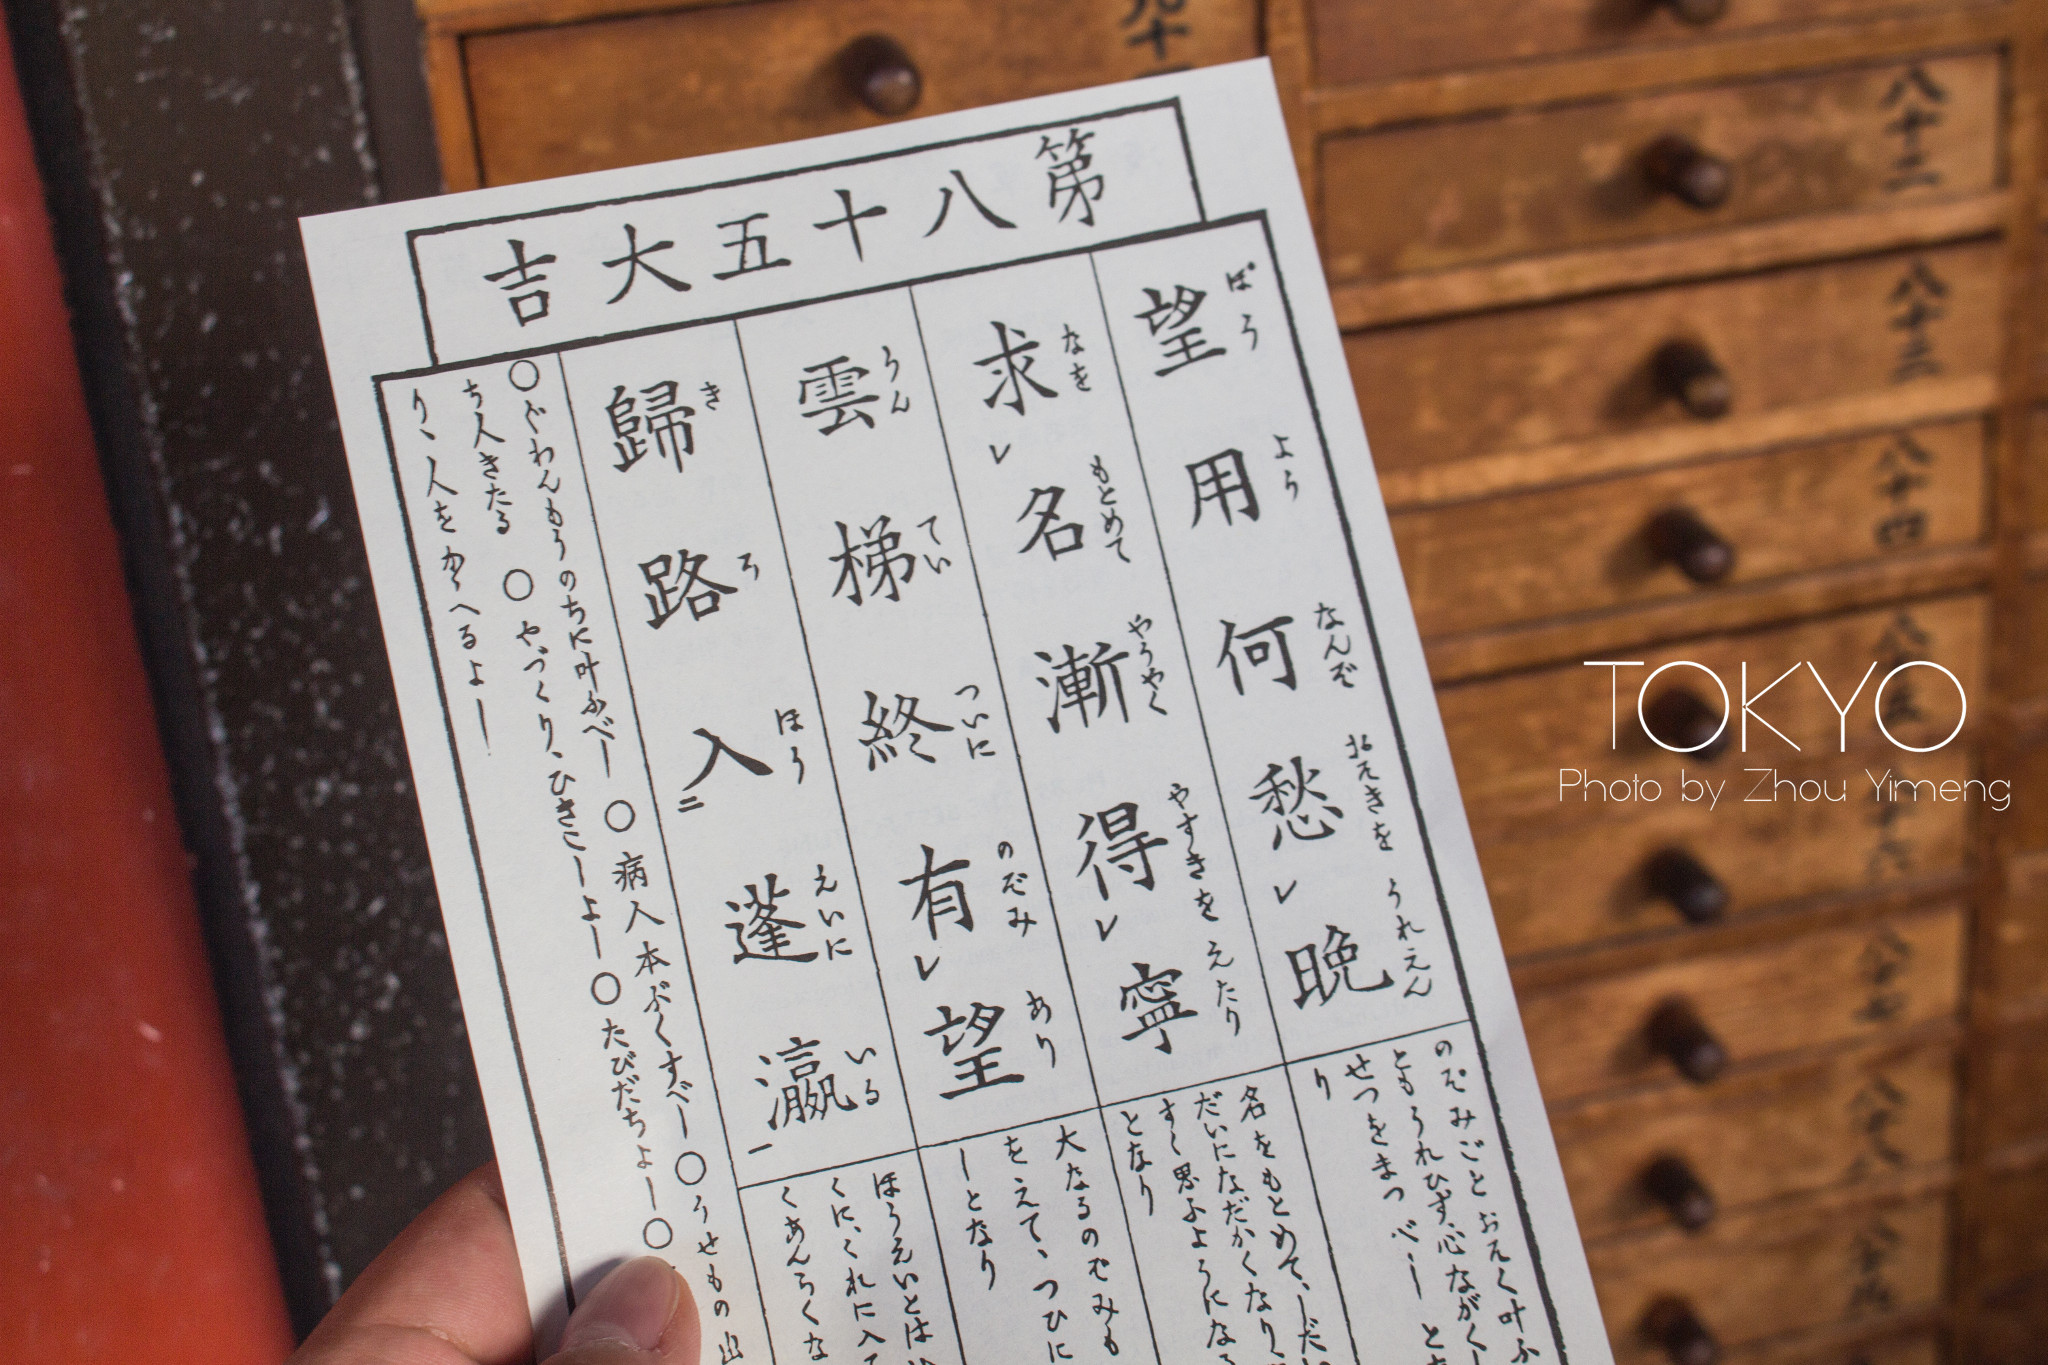 第八十五大吉
望用何愁レ晩
ばう よう なんぞ おそきを うれえん
求レ名漸得レ寧
なを もとめて やうやく やすきを えたり
雲梯終有レ望
うん てい ついに のぞみ あり
歸路入二蓬瀛一
き ろ ほう えいに いる
のぞみごとおそく叶ふ
ともうれひず、心ながく
せつをまつべしと
り
名をもとめて、しだい
だいになだかくなり、
すく思ふようになる
となり
大なるのぞみも
をえて、つひに
しとなり
ほうえいとは
くに、くれに入て
くあんらくな
○ぐわんもうのちに叶ふべし ○病人本ぶくすべし○うせもの出
ち人きたる ○やづくり、ひきこしよし○たびだちよし○
り、人をかゝへるよし
九十
八十二
八十三
八十四
八十五
八十六
八十七
八十八
八十九
TOKYO
Photo by Zhou Yimeng